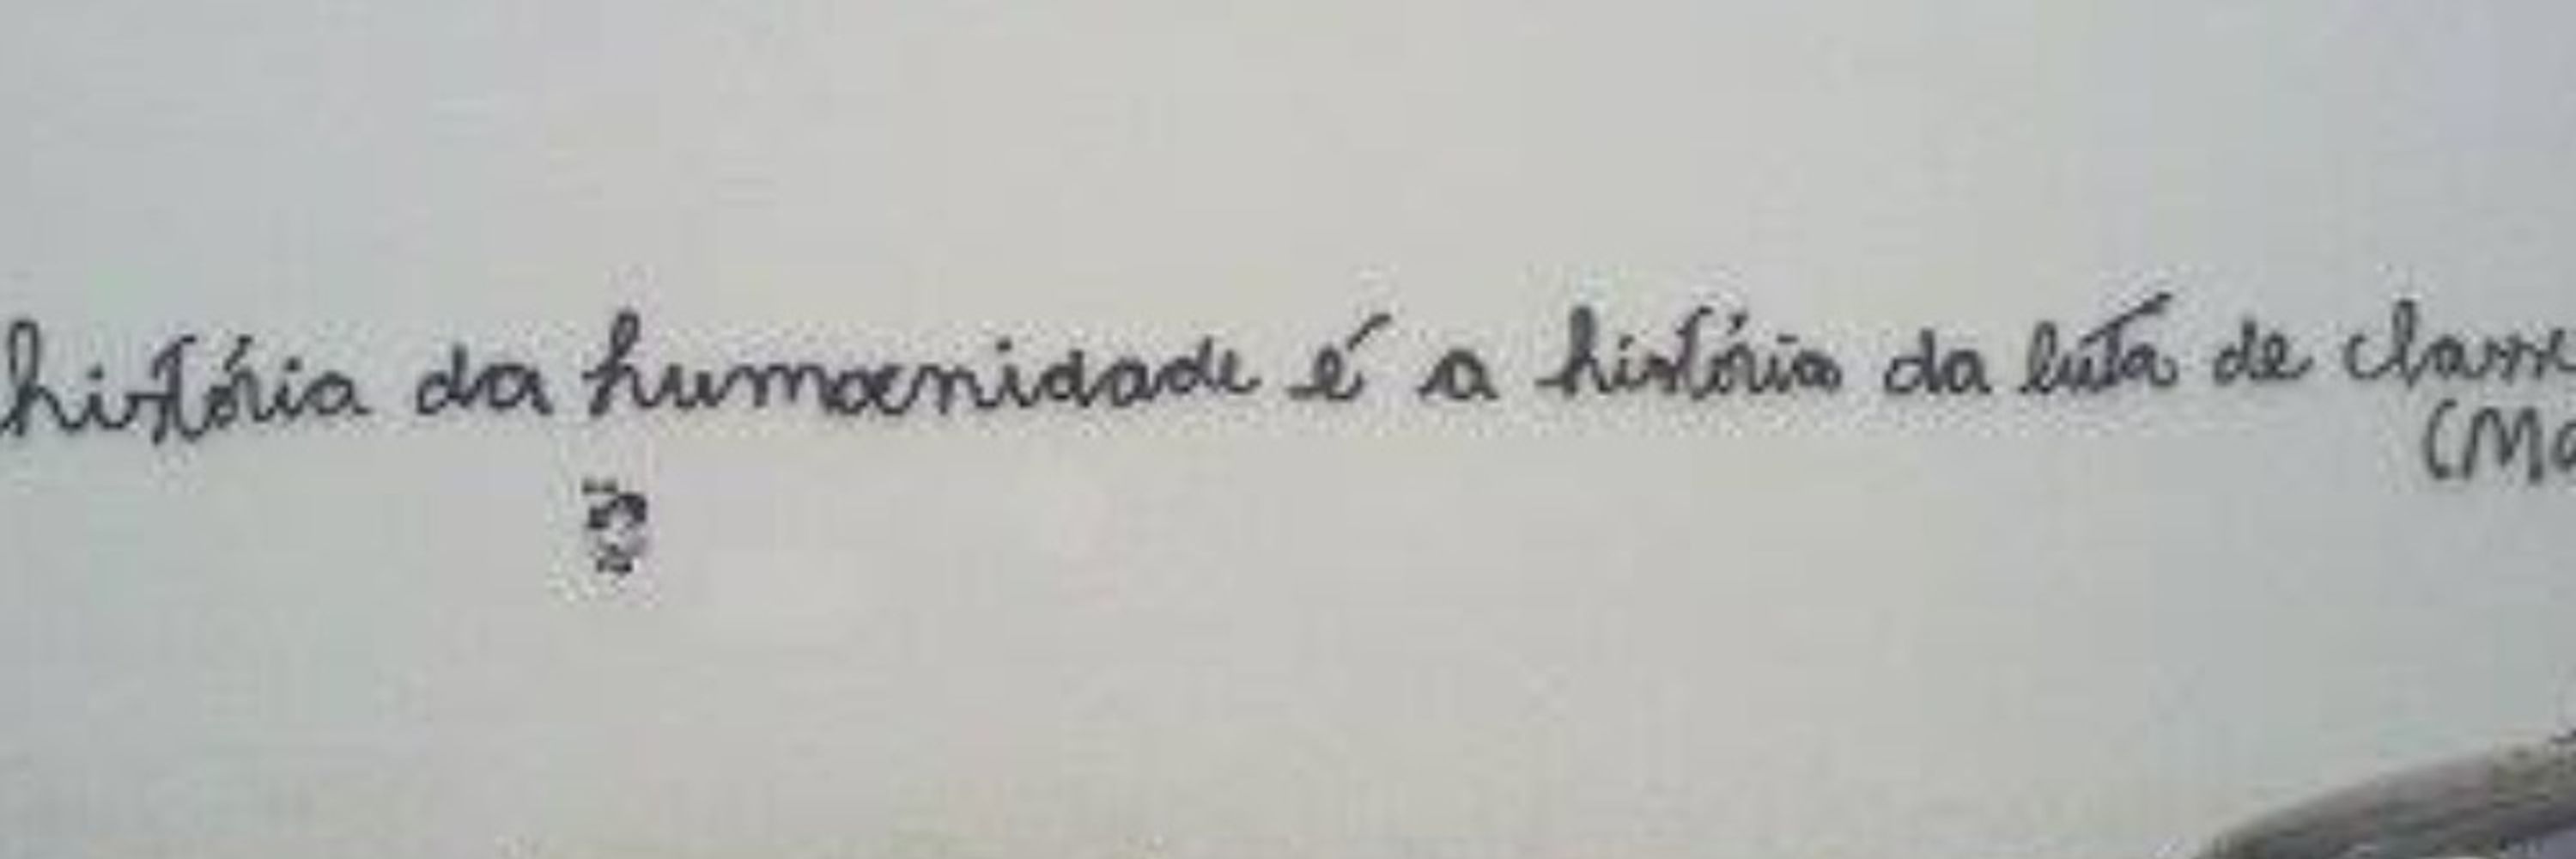 história da humanidade é a história da luta de classe
(Ma